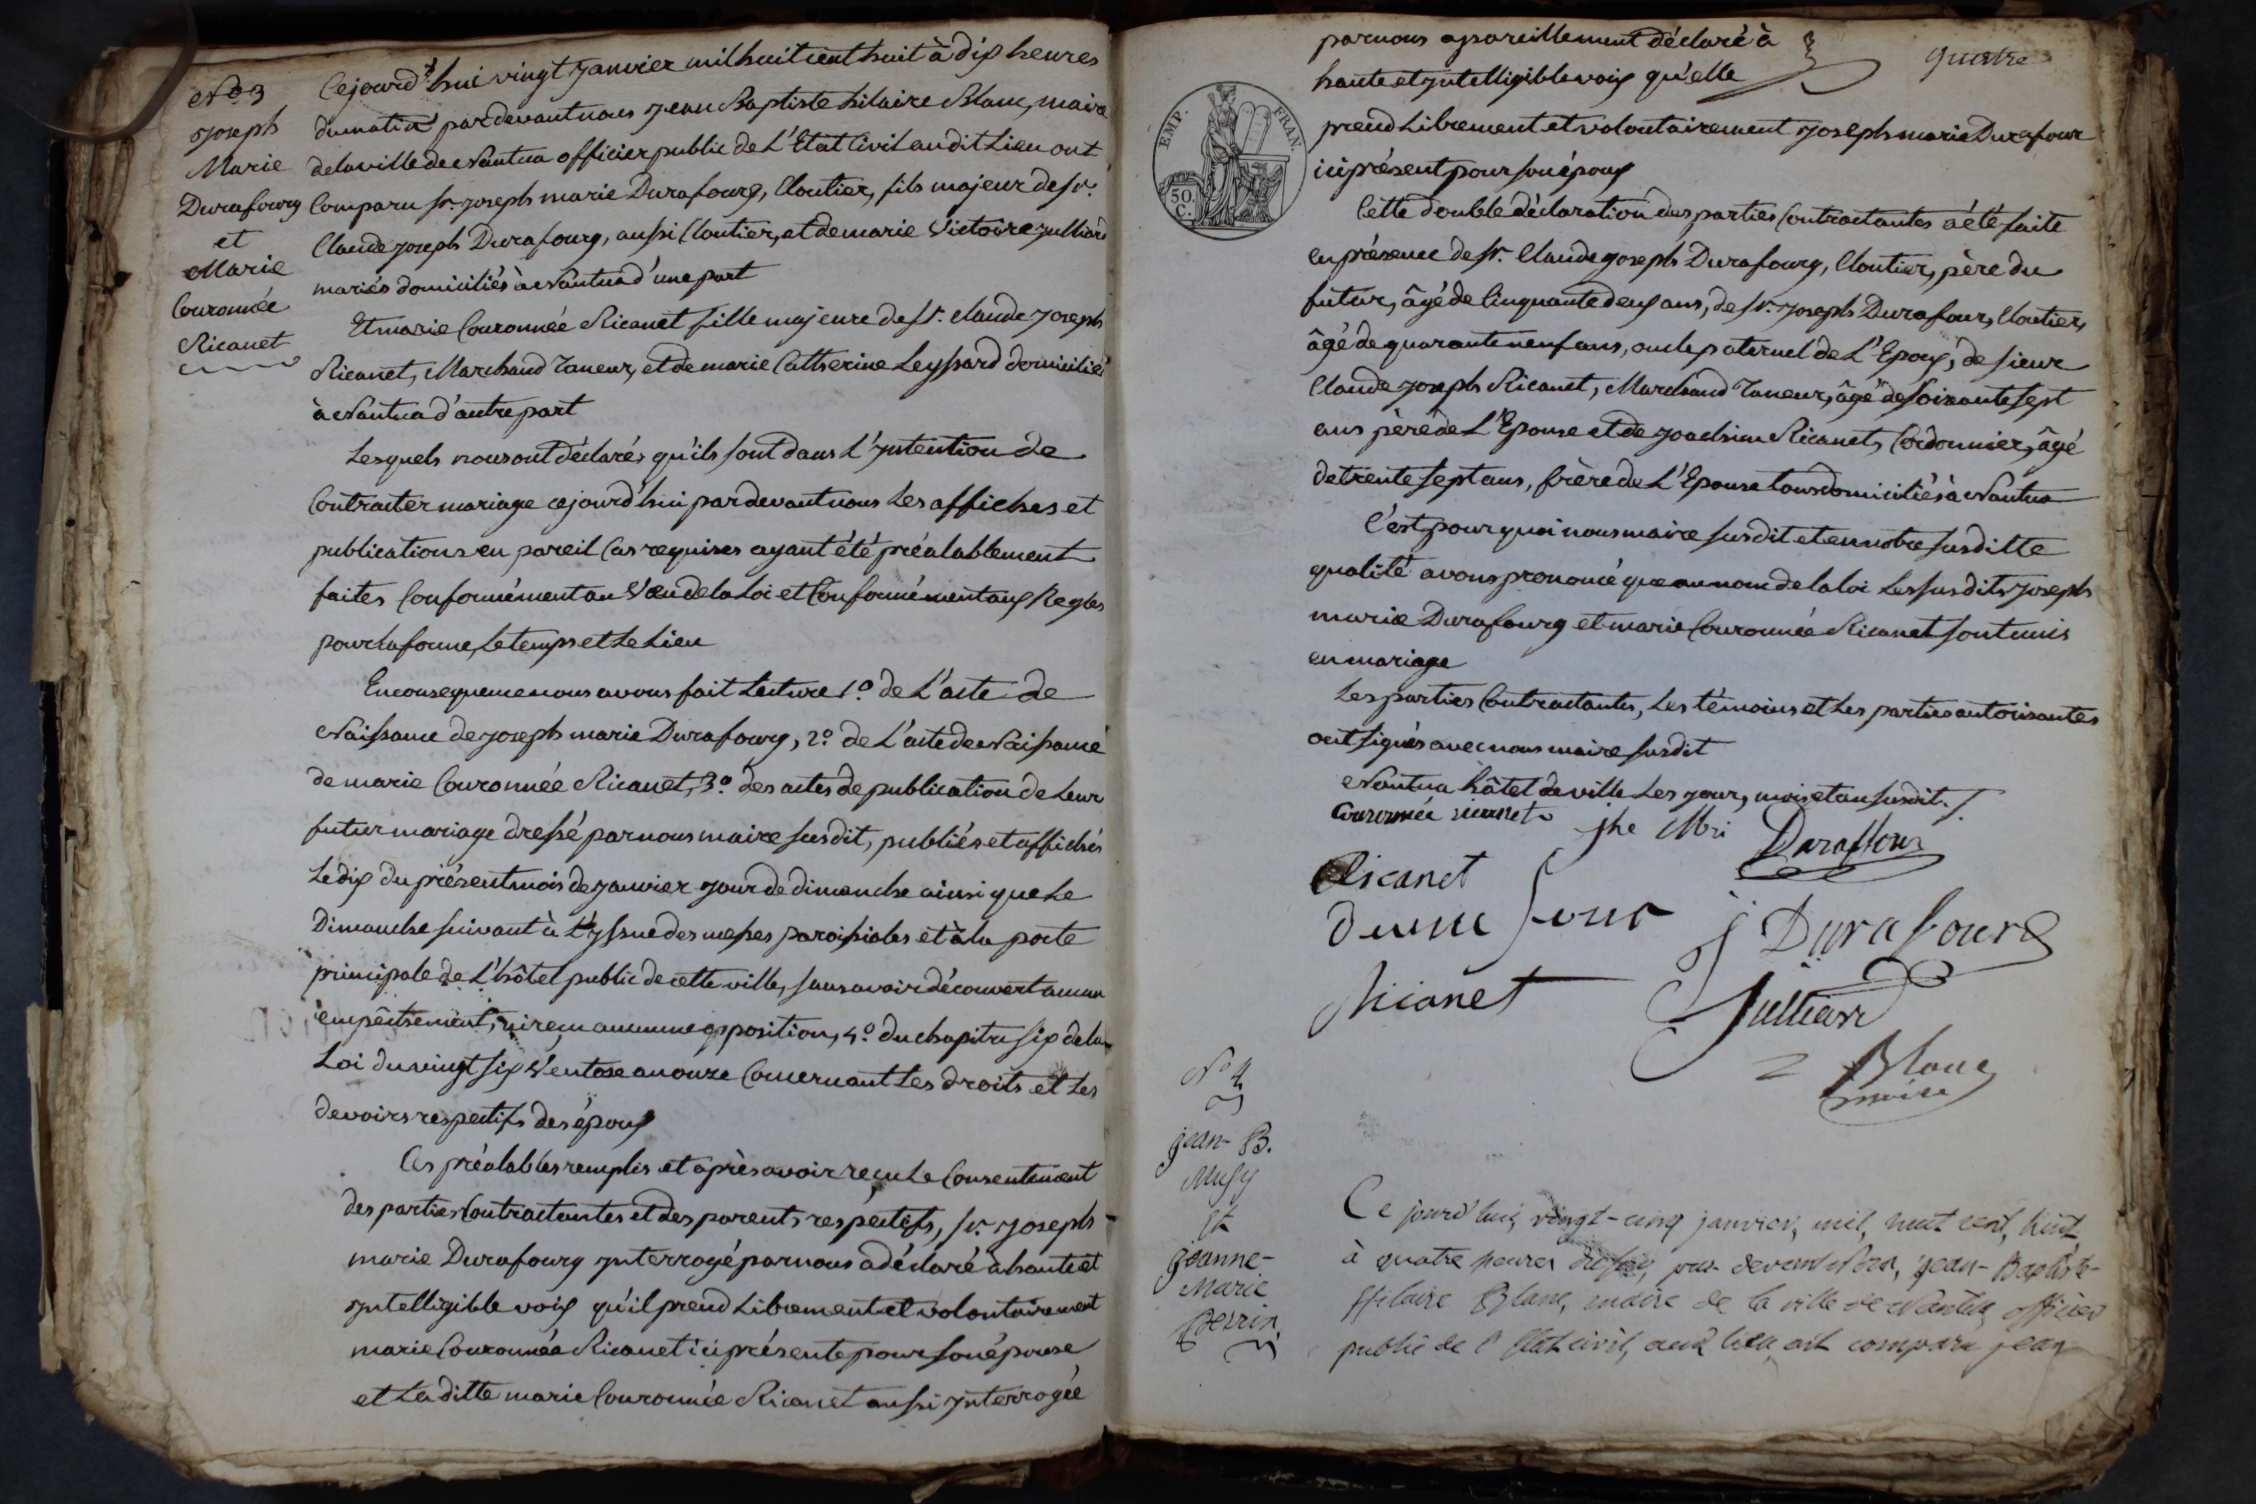 N.o 3
Joseph
Marie
Durafourg
et
Marie
Couronnée
Ricanet
Cejourd'hui vingt Janvier mil huit cent huit à dix heures
du matin pardevant nous Jean Baptiste hilaire Blanc, maire
de la ville de Nantua officier public de L'Etat Civil au dit Lieu ont
Comparu Sr. Joseph marie Durafourg, Cloutier, fils majeur de Sr.
Claude Joseph Durafourg, aussi Cloutier, et de marie Victoire Julliard
mariés domiciliés à Nantua d'une part
Et marie Couronnée Ricanet fille majeure de Sr. Claude Joseph
Ricanet, Marchand Taneur, et de marie Catherine Leyssard domiciliés
à Nantua d'autre part
Lesquels nous ont déclarés qu'ils sont dans L'Intention de
Contracter mariage cejourd'hui pardevant nous Les affiches et
publications en pareil Cas requises ayant été préalablement
faites Conformément au Vœu de la Loi et Conformément aux Regles
pour la forme, Le temps et Le Lieu
En conséquence nous avons fait Lecture 1.o de L'acte de
Naissance de Joseph marie Durafourg, 2.o de L'acte de Naissance
de marie Couronnée Ricanet, 3.o des actes de publication de Leur
futur mariage dressé par nous maire susdit, publiés et affichés
Le dix du présent mois de Janvier Jour de dimanche ainsi que Le
Dimanche suivant à L'Issue des messes paroissiales et à la porte
principale de L'hôtel public de cette ville, sans avoir découvert aucun
empêchement, ni reçu aucune opposition, 4.o du chapitre six de la
Loi du vingt six Ventose an onze Concernant Les droits et Les
devoirs respectifs des époux
Ces préalables remplis et après avoir reçu Le Consentement
des parties Contractantes et des parents respectifs, Sr. Joseph
marie Durafourg Interrogé par nous a déclaré à haute et
Intelligible voix qu'il prend Librement et volontairement
marie Couronnée Ricanet ici présente pour son épouse
et La ditte marie Couronnée Ricanet aussi Interrogée
quatre
par nous a pareillement déclaré à
haute et Intelligible voix qu'elle
EMP. FRAN.
50.
C.
prend Librement et volontairement Joseph marie Durafour
ici présent pour son époux
Cette double déclaration des parties Contractantes a été faite
en présence de Sr. Claude Joseph Durafourg, Cloutier, père du
futur, âgé de Cinquante deux ans, de Sr. Joseph Durafour, Cloutier,
âgé de quarante neuf ans, oncle paternel de L'Epoux, de sieur
Claude Joseph Ricanet, Marchand Taneur, âgé de soixante sept
ans père de L'Epouse et de Joachim Ricanet, Cordonnier, âgé
de trente sept ans, frère de L'Epouse tous domiciliés à Nantua
C'est pourquoi nous maire susdit et en notre susditte
qualité avons prononcé que au nom de la loi Les susdits Joseph
marie Durafourg et marie Couronnée Ricanet sont unis
en mariage
Les parties Contractantes, Les témoins et Les parties autorisantes
ont signés avec nous maire susdit
Nantua hôtel de ville Les Jour, mois et an susdit./.
Couronnée ricanet jhe Mri Duraffour
Ricanet
J Durafourg
Ricanet Julliard
Blanc
maire
No 4
jean-B.
Musy
Et
jeanne-
Marie
Perrin
Ce jourd'hui, vingt-cinq janvier, mil, huit cent, huit
à quatre heures du soir, par devant Nous, jean-Baptiste-
hilaire Blanc, maire de la ville de Nantua officier
public de l'Etat civil, aud. lieu, ont comparu jean